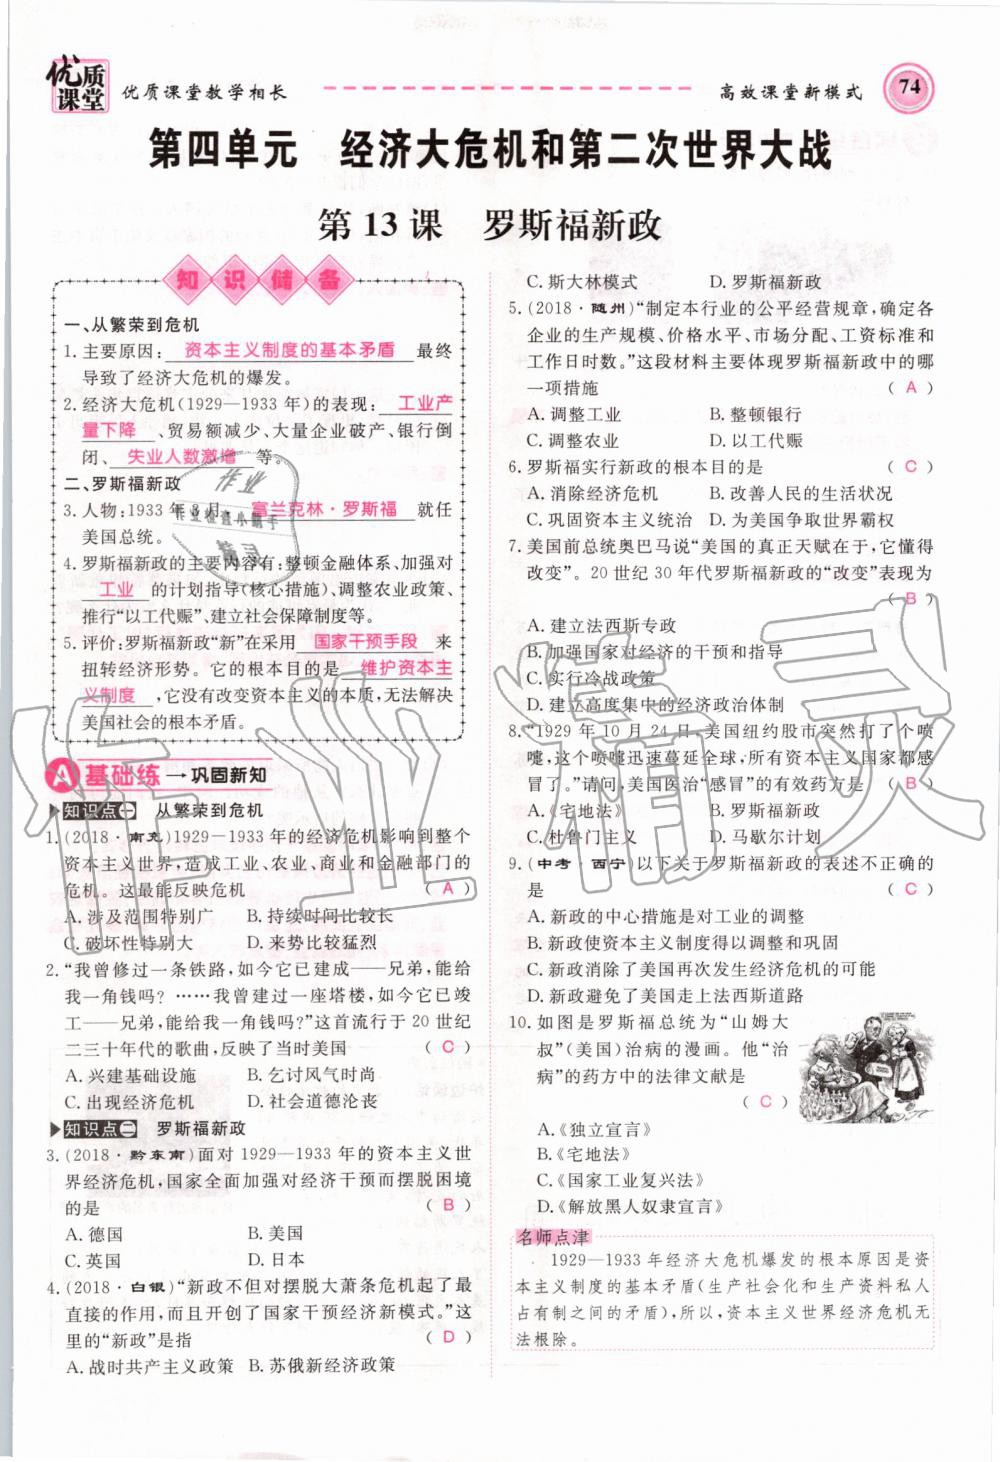 优质课堂
优质课堂教学相长
高效课堂新模式
74
第四单元 经济大危机和第二次世界大战
第 13 课 罗斯福新政
知识储备
一、从繁荣到危机
1. 主要原因: 资本主义制度的基本矛盾 最终
导致了经济大危机的爆发。
2. 经济大危机(1929—1933 年)的表现: 工业产
量下降 、贸易额减少、大量企业破产、银行倒
闭、 失业人数激增 等。
二、罗斯福新政
3. 人物:1933 年 3 月, 富兰克林·罗斯福 就任
美国总统。
4. 罗斯福新政的主要内容有:整顿金融体系、加强对
工业 的计划指导(核心措施)、调整农业政策、
推行“以工代赈”、建立社会保障制度等。
5. 评价:罗斯福新政“新”在采用 国家干预手段 来
扭转经济形势。它的根本目的是 维护资本主
义制度 ,它没有改变资本主义的本质,无法解决
美国社会的根本矛盾。
A 基础练→巩固新知
知识点一 从繁荣到危机
1. (2018·南充)1929—1933 年的经济危机影响到整个
资本主义世界,造成工业、农业、商业和金融部门的
危机。这最能反映危机 ( A )
A. 涉及范围特别广 B. 持续时间比较长
C. 破坏性特别大 D. 来势比较猛烈
2. “我曾修过一条铁路,如今它已建成——兄弟,能给
我一角钱吗? ……我曾建过一座塔楼,如今它已竣
工——兄弟,能给我一角钱吗?”这首流行于 20 世纪
二三十年代的歌曲,反映了当时美国 ( C )
A. 兴建基础设施 B. 乞讨风气时尚
C. 出现经济危机 D. 社会道德沦丧
知识点二 罗斯福新政
3. (2018·黔东南)面对 1929—1933 年的资本主义世
界经济危机,国家全面加强对经济干预而摆脱困境
的是 ( B )
A. 德国 B. 美国
C. 英国 D. 日本
4. (2018·白银)“新政不但对摆脱大萧条危机起了最
直接的作用,而且开创了国家干预经济新模式。”这
里的“新政”是指 ( D )
A. 战时共产主义政策 B. 苏俄新经济政策
C. 斯大林模式 D. 罗斯福新政
5. (2018·随州)“制定本行业的公平经营规章,确定各
企业的生产规模、价格水平、市场分配、工资标准和
工作日时数。”这段材料主要体现罗斯福新政中的哪
一项措施 ( A )
A. 调整工业 B. 整顿银行
C. 调整农业 D. 以工代赈
6. 罗斯福实行新政的根本目的是 ( C )
A. 消除经济危机 B. 改善人民的生活状况
C. 巩固资本主义统治 D. 为美国争取世界霸权
7. 美国前总统奥巴马说“美国的真正天赋在于,它懂得
改变”。20 世纪 30 年代罗斯福新政的“改变”表现为
( B )
A. 建立法西斯专政
B. 加强国家对经济的干预和指导
C. 实行冷战政策
D. 建立高度集中的经济政治体制
8. “1929 年 10 月 24 日,美国纽约股市突然打了个喷
嚏,这个喷嚏迅速蔓延全球,所有资本主义国家都感
冒了。”请问,美国医治“感冒”的有效药方是 ( B )
A.《宅地法》 B. 罗斯福新政
C. 杜鲁门主义 D. 马歇尔计划
9. (中考·西宁)以下关于罗斯福新政的表述不正确的
是 ( C )
A. 新政的中心措施是对工业的调整
B. 新政使资本主义制度得以调整和巩固
C. 新政消除了美国再次发生经济危机的可能
D. 新政避免了美国走上法西斯道路
10. 如图是罗斯福总统为“山姆大
叔”(美国)治病的漫画。他“治
病”的药方中的法律文献是
( C )
A.《独立宣言》
B.《宅地法》
C.《国家工业复兴法》
D.《解放黑人奴隶宣言》
名师点津
1929—1933 年经济大危机爆发的根本原因是资
本主义制度的基本矛盾(生产社会化和生产资料私人
占有制之间的矛盾),所以,资本主义世界经济危机无
法根除。
作业精灵
作业
作业检查小助手
精灵